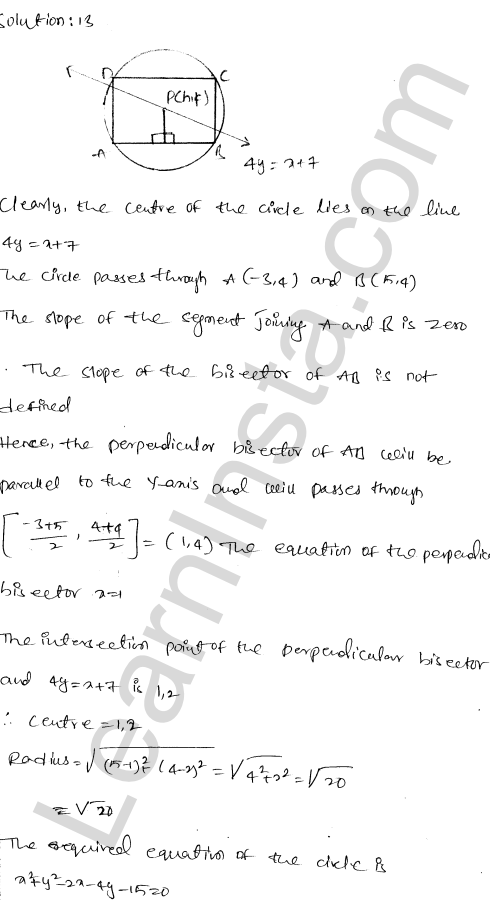 Solution:13
D
C
P(h,k)
A
B
4y=x+7
Clearly, the centre of the circle lies on the line
4y=x+7
The circle passes through A(-3,4) and B(5,4)
The slope of the segment joining A and B is zero
. The slope of the bisector of AB is not
defined
Hence, the perpendicular bisector of AB will be
parallel to the Y-axis and will passes through
[-3+5/2, 4+4/2] = (1,4) The equation of the perpendic
bisector x=1
The intersection point of the perpendicular bisector
and 4y=x+7 is 1,2
∴ Centre = 1,2
Radius = √(5-1)²+(4-2)² = √4²+2² = √20
= √20
The required equation of the circle is
x²+y²-2x-4y-15=0
LearnInsta.com